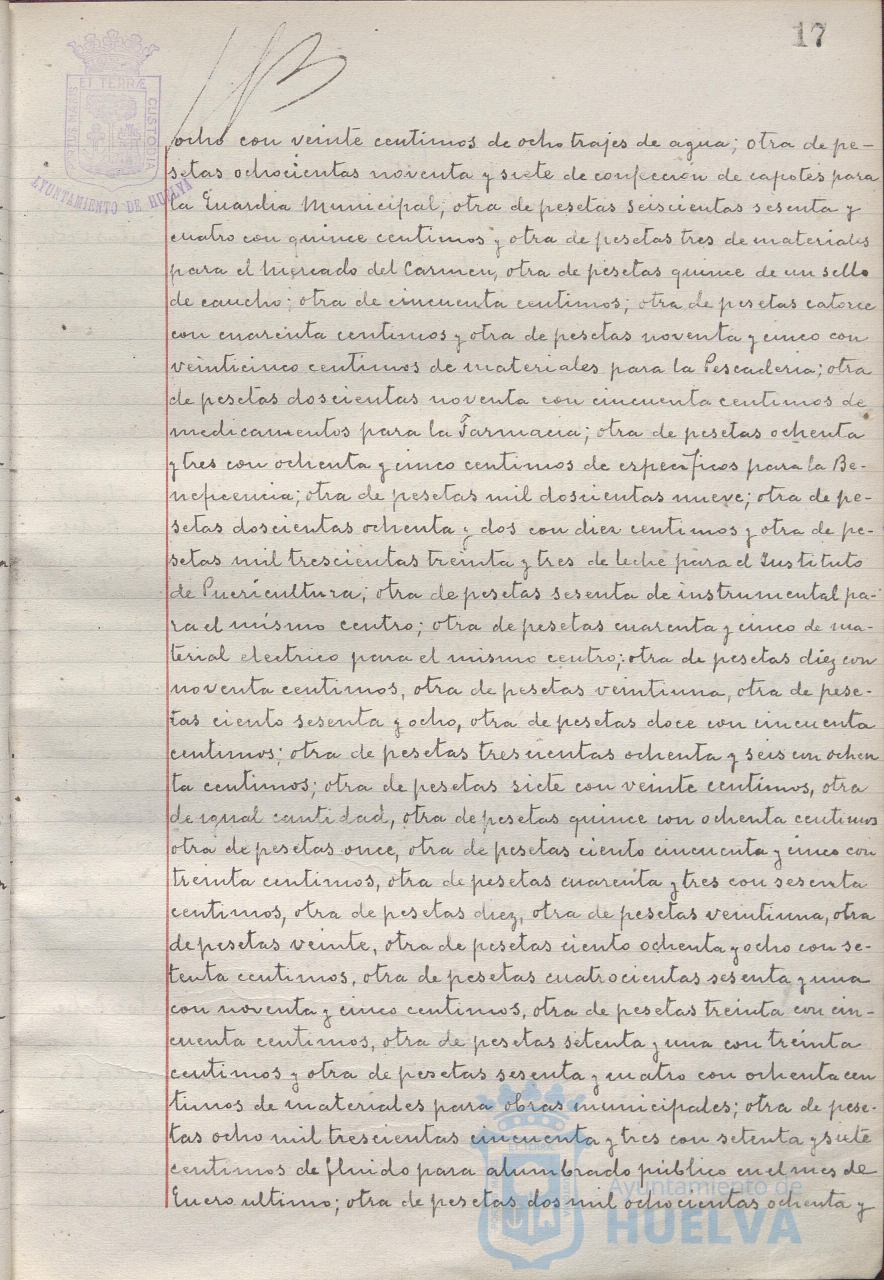 17
PORTUS MARIS
ET TERRÆ
CUSTODIA
AYUNTAMIENTO DE HUELVA
ocho con veinte centimos de ocho trajes de agua; otra de pe-
setas ochocientas noventa y siete de confeccion de capotes para
la Guardia Municipal; otra de pesetas seiscientas sesenta y
cuatro con quince centimos y otra de pesetas tres de materiales
para el Mercado del Carmen, otra de pesetas quince de un sello
de caucho; otra de cincuenta centimos; otra de pesetas catorce
con cuarenta centimos y otra de pesetas noventa y cinco con
veinticinco centimos de materiales para la Pescaderia; otra
de pesetas doscientas noventa con cincuenta centimos de
medicamentos para la Farmacia; otra de pesetas ochenta
y tres con ochenta y cinco centimos de especificos para la Be-
neficencia; otra de pesetas mil doscientas nueve; otra de pe-
setas doscientas ochenta y dos con diez centimos y otra de pe-
setas mil trescientas treinta y tres de leche para el Instituto
de Puericultura; otra de pesetas sesenta de instrumental pa-
ra el mismo centro; otra de pesetas cuarenta y cinco de ma-
terial electrico para el mismo centro; otra de pesetas diez con
noventa centimos, otra de pesetas veintiuna, otra de pese-
tas ciento sesenta y ocho, otra de pesetas doce con cincuenta
centimos; otra de pesetas trescientas ochenta y seis con ochen
ta centimos; otra de pesetas siete con veinte centimos, otra
de igual cantidad, otra de pesetas quince con ochenta centimos
otra de pesetas once, otra de pesetas ciento cincuenta y cinco con
treinta centimos, otra de pesetas cuarenta y tres con sesenta
centimos, otra de pesetas diez, otra de pesetas veintiuna, otra
de pesetas veinte, otra de pesetas ciento ochenta y ocho con se-
tenta centimos, otra de pesetas cuatrocientas sesenta y una
con noventa y cinco centimos, otra de pesetas treinta con cin-
cuenta centimos, otra de pesetas setenta y una con treinta
centimos y otra de pesetas sesenta y cuatro con ochenta cen
timos de materiales para obras municipales; otra de pese-
tas ocho mil trescientas cincuenta y tres con setenta y siete
centimos de fluido para alumbrado público en el mes de
Enero ultimo; otra de pesetas dos mil ochocientas ochenta y
Ayuntamiento de
HUELVA